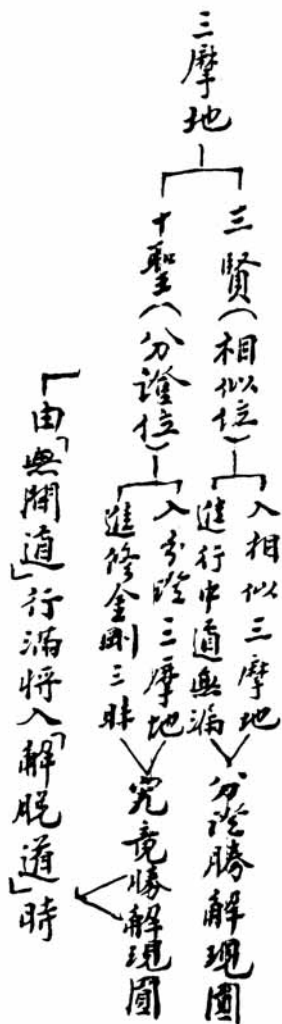 三摩地
三賢（相似位）
入相似三摩地
進行中道無漏
分證勝解現圓
十聖（分證位）
入分證三摩地
進修金剛三昧
究竟勝解現圓
由「無間道」行滿將入「解脫道」時